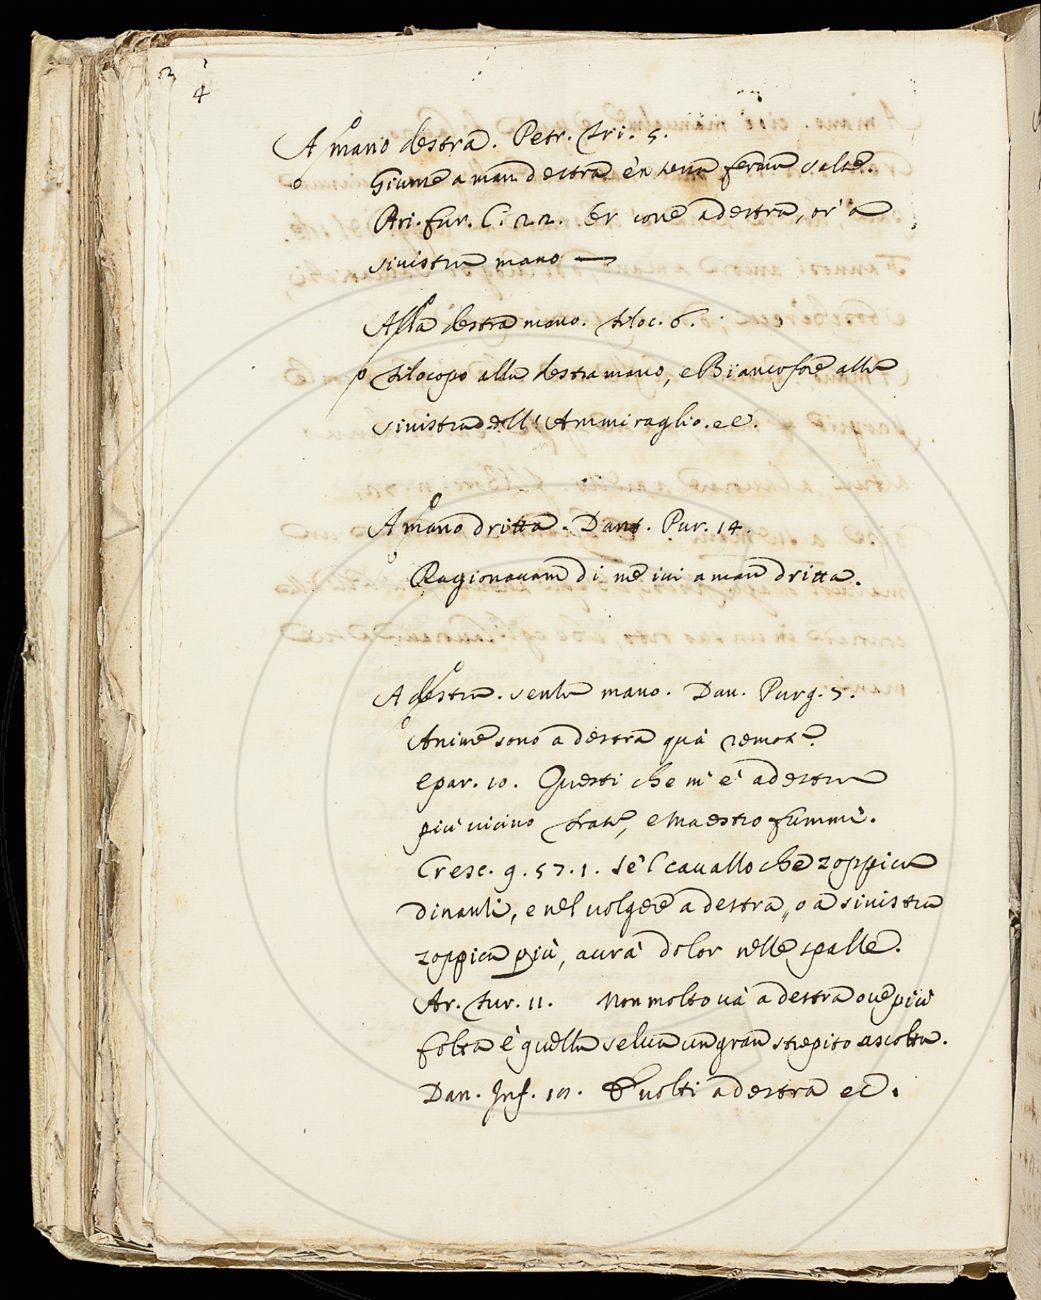 3
4
A mano destra. Petr. Tri. 5.
Giunse a man destra, e'n terra ferma salse.
Ari. fur. C. 22. Et corre a destra, or' a
sinistra mano —
Alla destra mano. filoc. 6.
filocopo alla destra mano, e Biancofore alla
sinistra dell' Ammiraglio. ec.
A mano dritta. Dant. Pur. 14.
Ragionavam di me ivi a man dritta.
A destra. senza mano. Dan. Purg. 7.
Anime sono a destra quà remote.
e par. 10. Questi che m'è a destra
più vicino frate, e Maestro fummi.
Cresc. 9. 57. 1. Se'l cavallo che zoppica
dinanzi, e nel volgere a destra, o a sinistra
zoppica più, avrà dolor nelle spalle.
Ar. fur. 11. Non molto và a destra ove più
folta è quella selva un gran strepito ascolta.
Dan. Inf. 10. volti a destra ec.